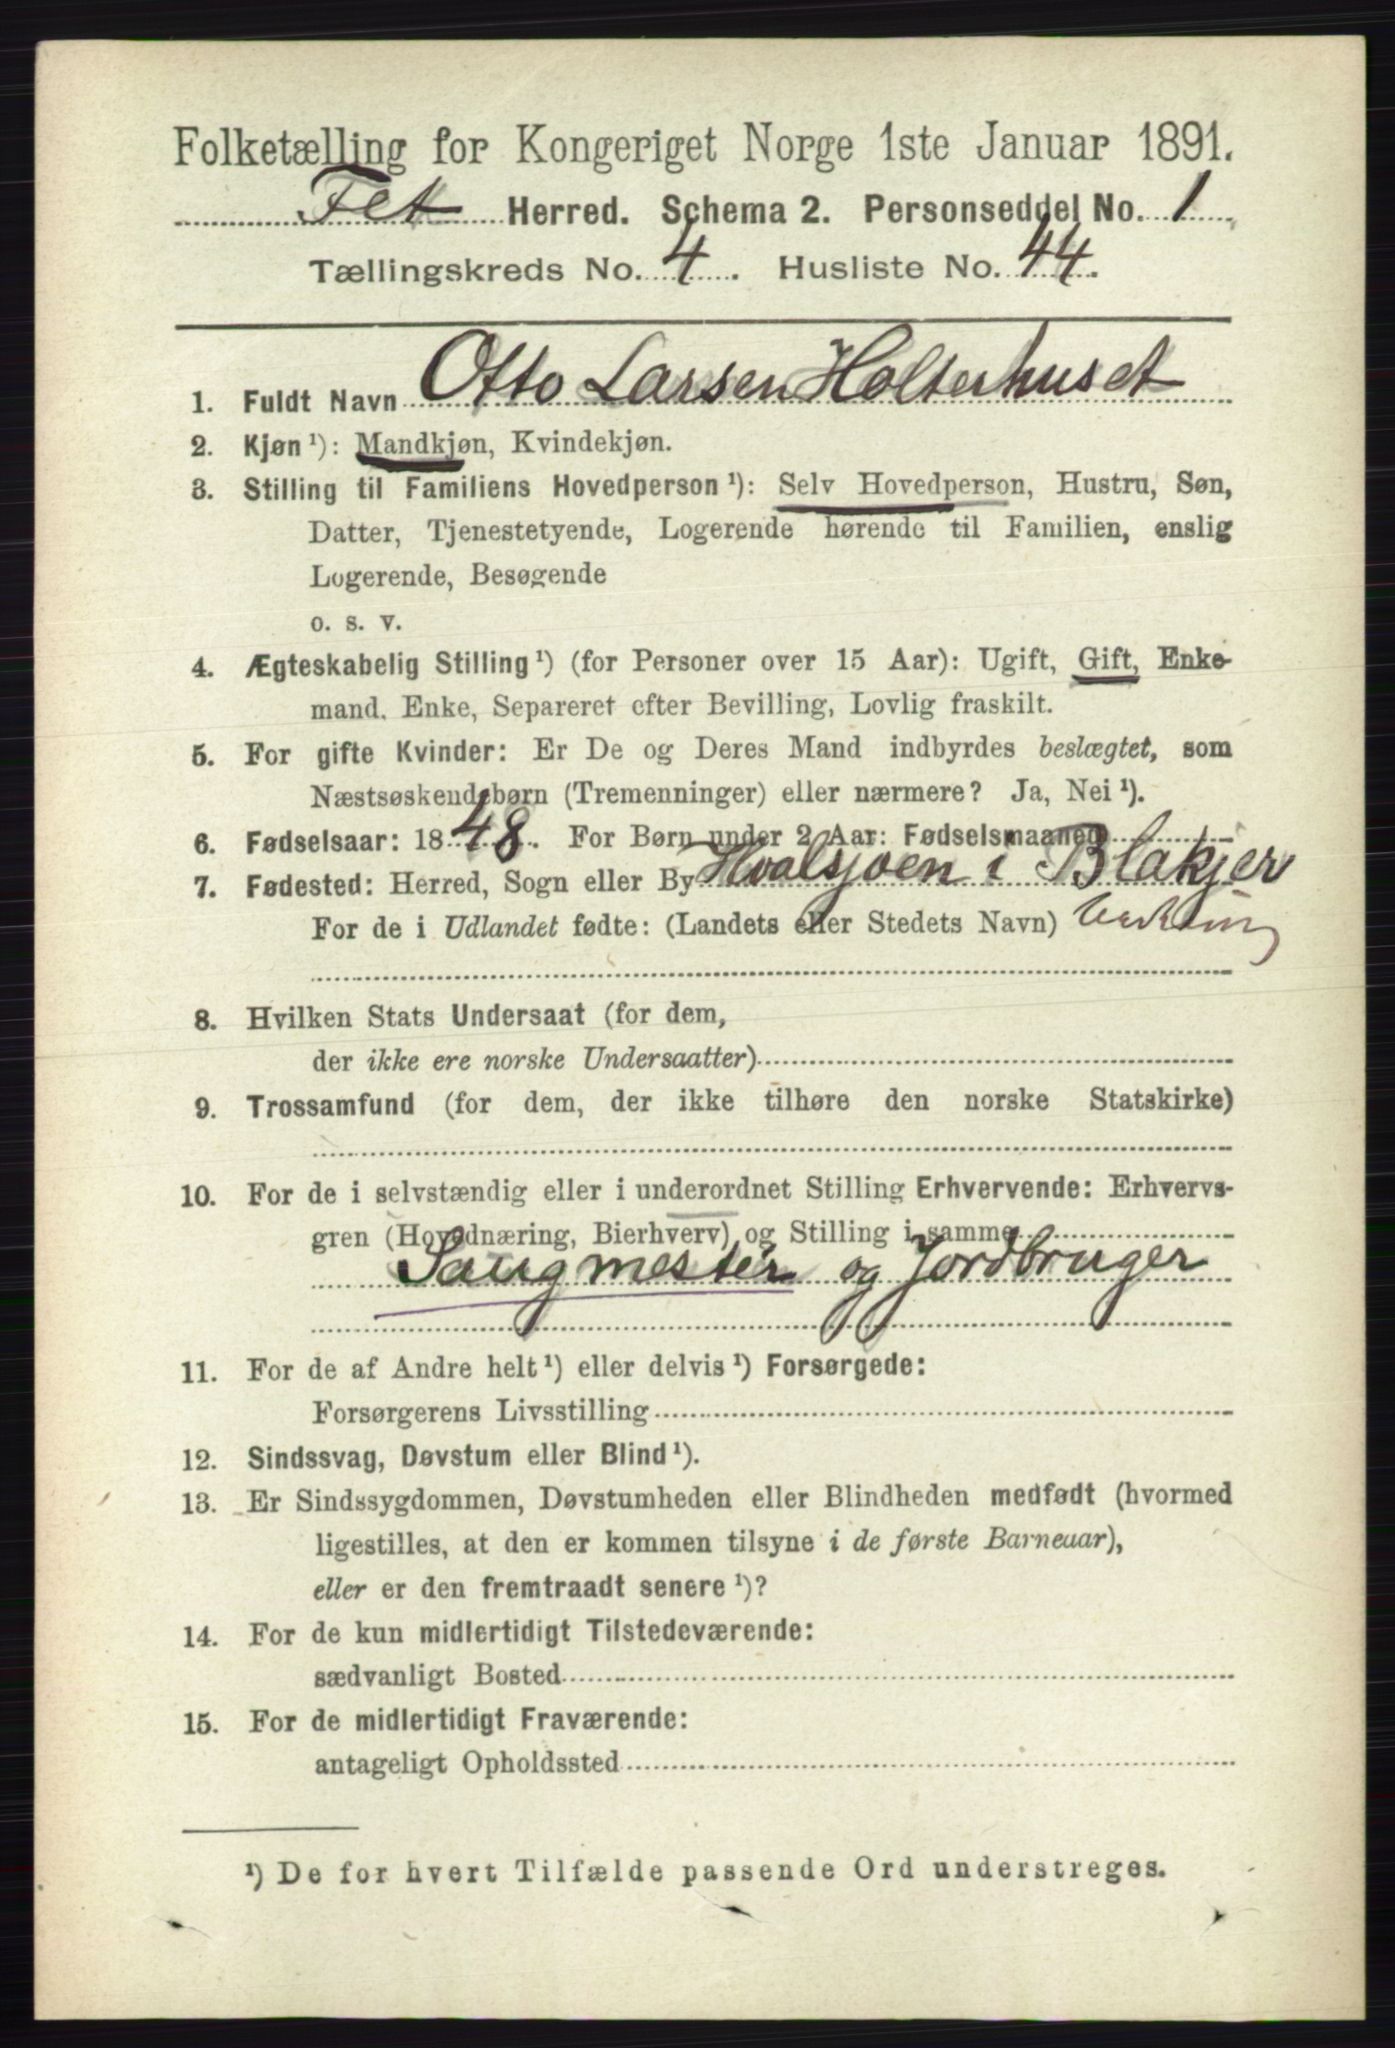 Folketælling for Kongeriget Norge 1ste Januar 1891.
Fet Herred. Schema 2. Personseddel No. 1
Tællingskreds No. 4. Husliste No. 44.
1. Fuldt Navn Otto Larsen Holterhuset
2. Kjøn¹): Mandkjøn, Kvindekjøn.
3. Stilling til Familiens Hovedperson¹): Selv Hovedperson, Hustru, Søn,
Datter, Tjenestetyende, Logerende hørende til Familien, enslig
Logerende, Besøgende
o. s. v.
4. Ægteskabelig Stilling¹) (for Personer over 15 Aar): Ugift, Gift, Enke-
mand, Enke, Separeret efter Bevilling, Lovlig fraskilt.
5. For gifte Kvinder: Er De og Deres Mand indbyrdes beslægtet, som
Næstsøskendebørn (Tremenninger) eller nærmere? Ja, Nei¹).
6. Fødselsaar: 1848. For Børn under 2 Aar: Fødselsmaaned
7. Fødested: Herred, Sogn eller By Hvalsjøen i Blakjer
For de i Udlandet fødte: (Landets eller Stedets Navn)
8. Hvilken Stats Undersaat (for dem,
der ikke ere norske Undersaatter)
9. Trossamfund (for dem, der ikke tilhøre den norske Statskirke)
10. For de i selvstændig eller i underordnet Stilling Erhvervende: Erhvervs-
gren (Hovednæring, Bierhverv) og Stilling i samme
Saugmester og Jordbruger
11. For de af Andre helt¹) eller delvis¹) Forsørgede:
Forsørgerens Livsstilling
12. Sindssvag, Døvstum eller Blind¹).
13. Er Sindssygdommen, Døvstumheden eller Blindheden medfødt (hvormed
ligestilles, at den er kommen tilsyne i de første Barneaar),
eller er den fremtraadt senere¹)?
14. For de kun midlertidigt Tilstedeværende:
sædvanligt Bosted
15. For de midlertidigt Fraværende:
antageligt Opholdssted
¹) De for hvert Tilfælde passende Ord understreges.